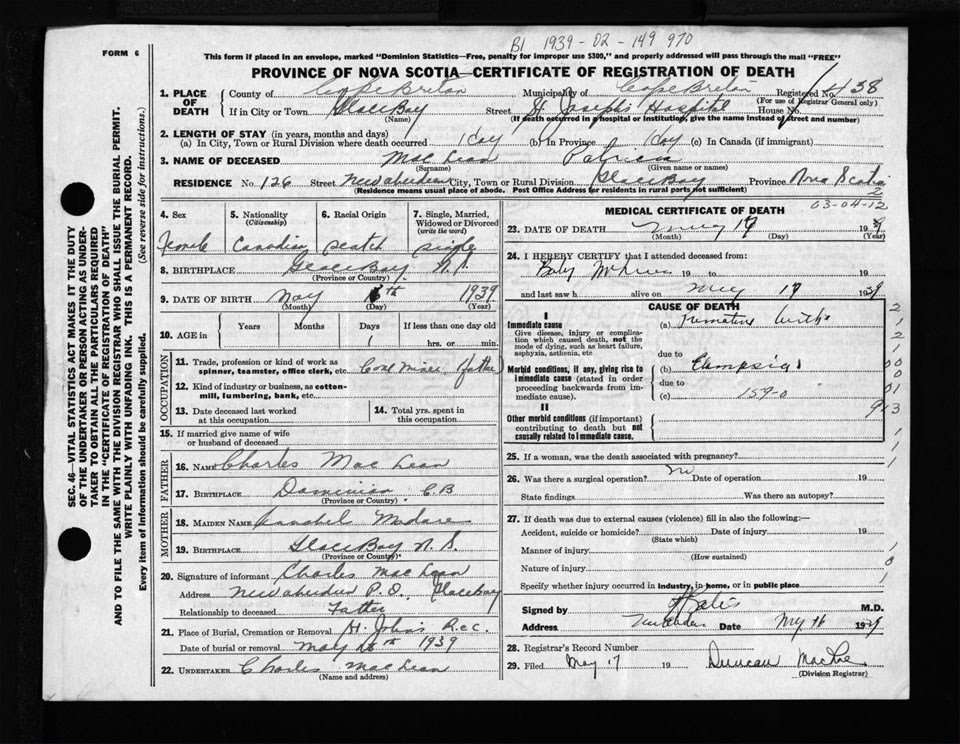 B1 1939 - 02 - 149 970
FORM 6
This form if placed in an envelope, marked "Dominion Statistics—Free, penalty for improper use $300," and properly addressed will pass through the mail "FREE"
PROVINCE OF NOVA SCOTIA—CERTIFICATE OF REGISTRATION OF DEATH
1. PLACE OF DEATH
County of Cape Breton Municipality of Cape Breton Registered No. 438
(For use of Registrar General only)
If in City or Town Glace Bay Street St. Josephs Hospital House No.
(Name) (If death occurred in a hospital or institution, give the name instead of street and number)
2. LENGTH OF STAY (in years, months and days)
(a) In City, Town or Rural Division where death occurred 1 day (b) In Province 1 day (c) In Canada (if immigrant)
3. NAME OF DECEASED Mac Lean Patricia
(Surname) (Given name or names)
RESIDENCE No. 126 Street New aberdeen City, Town or Rural Division Glace Bay Province Nova Scotia
(Residence means usual place of abode. Post Office Address for residents in rural parts not sufficient)
2
03-04-12
4. Sex
Female
5. Nationality (Citizenship)
Canadian
6. Racial Origin
Scotch
7. Single, Married, Widowed or Divorced (write the word)
single
8. BIRTHPLACE Glace Bay N.S.
(Province or Country)
9. DATE OF BIRTH May th 1939
(Month) (Day) (Year)
10. AGE in
Years Months Days If less than one day old
1 hrs. or min.
OCCUPATION
11. Trade, profession or kind of work as spinner, teamster, office clerk, etc. Coal Miner (father)
12. Kind of industry or business, as cotton-mill, lumbering, bank, etc.
13. Date deceased last worked at this occupation
14. Total yrs. spent in this occupation
15. If married give name of wife or husband of deceased
FATHER
16. NAME Charles Mac Lean
17. BIRTHPLACE Dominion C.B
(Province or Country)
MOTHER
18. MAIDEN NAME Annabel
19. BIRTHPLACE Glace Bay N.S.
(Province or Country)
20. Signature of informant Charles Mac Lean
Address New aberdeen P.O. Glace Bay
Relationship to deceased Father
21. Place of Burial, Cremation or Removal St. Johns
Date of burial or removal May th 1939
22. UNDERTAKER Charles Mac Lean
(Name and address)
MEDICAL CERTIFICATE OF DEATH
23. DATE OF DEATH May 1939
(Month) (Day) (Year)
24. I HEREBY CERTIFY that I attended deceased from:
Baby 19 to 19
and last saw h alive on May 17 1939
CAUSE OF DEATH
I
Immediate cause
Give disease, injury or complication which caused death, not the mode of dying, such as heart failure, asphyxia, asthenia, etc
(a) Premature birth
due to
Morbid conditions, if any, giving rise to immediate cause (stated in order proceeding backwards from immediate cause).
(b) Eclampsia
due to
(c) 159-0
II
Other morbid conditions (if important) contributing to death but not causally related to immediate cause.
25. If a woman, was the death associated with pregnancy?
26. Was there a surgical operation? No Date of operation 19
State findings Was there an autopsy?
27. If death was due to external causes (violence) fill in also the following:—
Accident, suicide or homicide? Date of injury 19
(State which)
Manner of injury
(How sustained)
Nature of injury
Specify whether injury occurred in industry, in home, or in public place
Signed by M.D.
Address Date May 16 1939
28. Registrar's Record Number
29. Filed May 17 19 Duncan
(Division Registrar)
SEC. 46—VITAL STATISTICS ACT MAKES IT THE DUTY
OF THE UNDERTAKER OR PERSON ACTING AS UNDER-
TAKER TO OBTAIN ALL THE PARTICULARS REQUIRED
IN THE "CERTIFICATE OF REGISTRATION OF DEATH"
AND TO FILE THE SAME WITH THE DIVISION REGISTRAR WHO SHALL ISSUE THE BURIAL PERMIT.
WRITE PLAINLY WITH UNFADING INK. THIS IS A PERMANENT RECORD.
Every item of information should be carefully supplied. (See reverse side for instructions.)